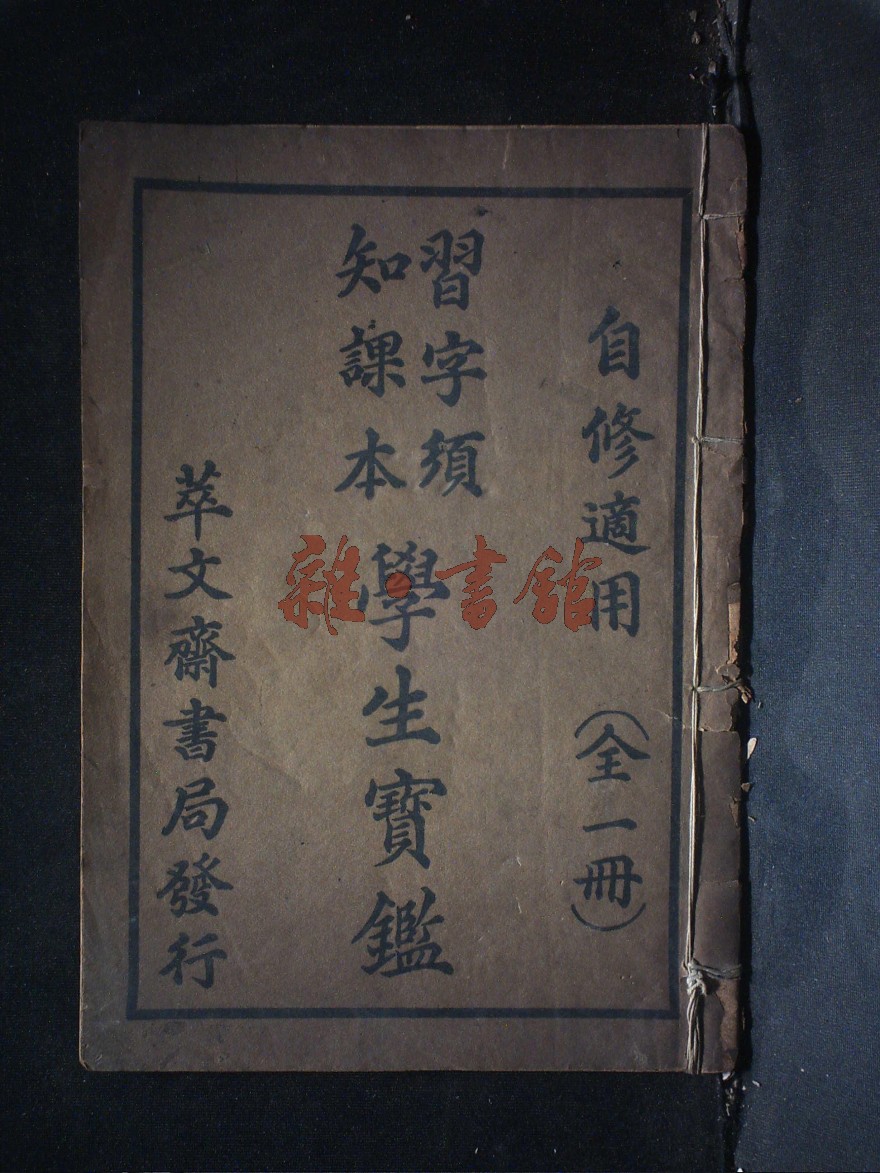 自修適用
(全一冊)
習字須
知課本
學生寶鑑
萃文齋書局發行
雜·書館